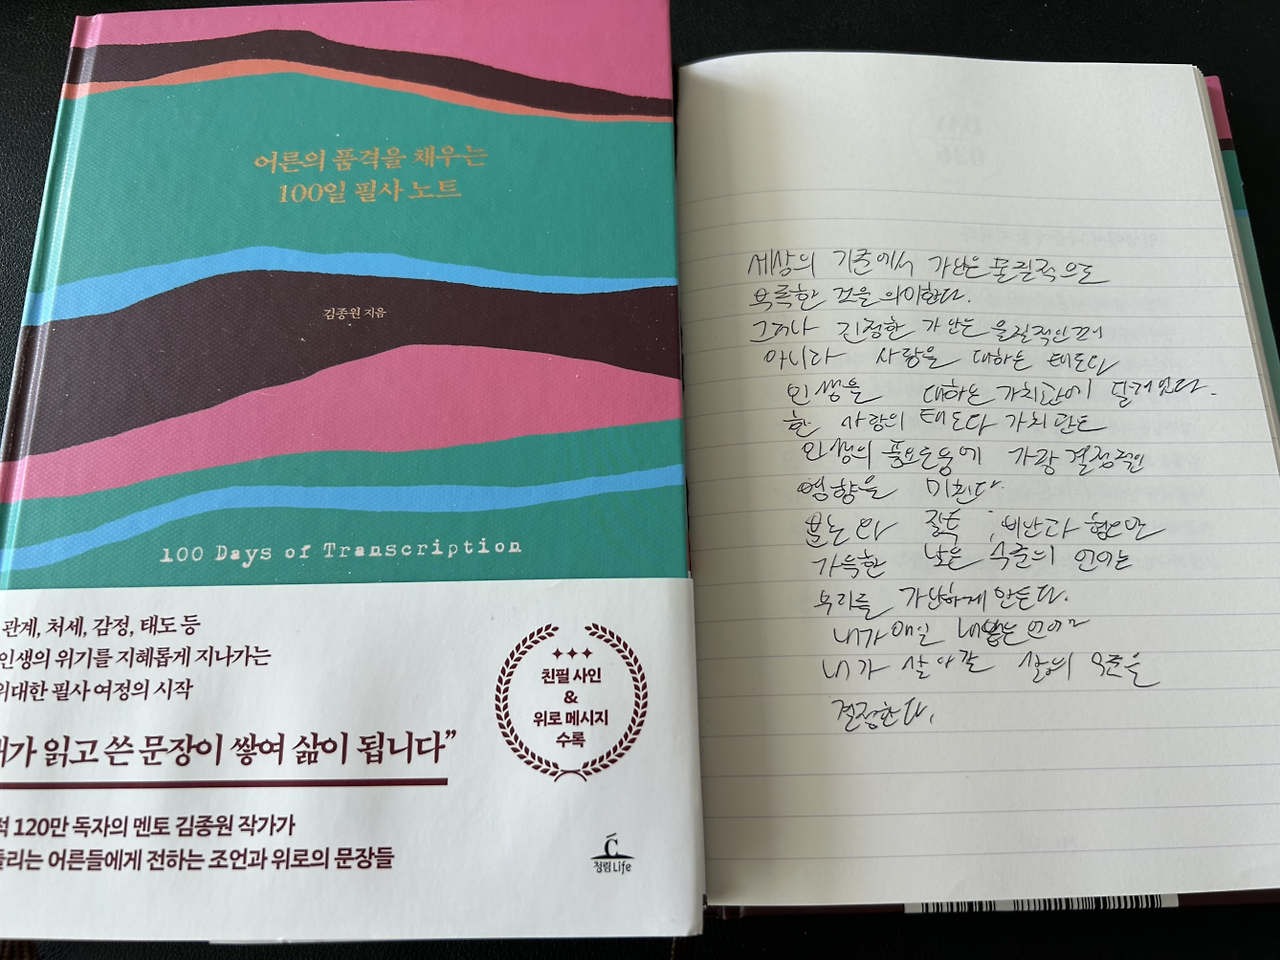 어른의 품격을 채우는
100일 필사 노트
김종원 지음
100 Days of Transcription
관계, 처세, 감정, 태도 등
인생의 위기를 지혜롭게 지나가는
위대한 필사 여정의 시작
내가 읽고 쓴 문장이 쌓여 삶이 됩니다”
120만 독자의 멘토 김종원 작가가
들리는 어른들에게 전하는 조언과 위로의 문장들
친필 사인
&
위로 메시지
수록
청림Life
세상의 기준에서 가난은 물질적으로
부족한 것을 의미한다.
그러나 진정한 가난은 물질적인게
아니라 사람을 대하는 태도와
인생을 대하는 가치관에 달려있다.
한 사람의 태도와 가치관은
인생의 풍요로움에 가장 결정적인
영향을 미친다.
분노와 질투, 비난과 혐오만
가득한 낮은 수준의 언어는
우리를 가난하게 만든다.
내가 매일 내뱉는 언어가
내가 살아갈 삶의 수준을
결정한다.